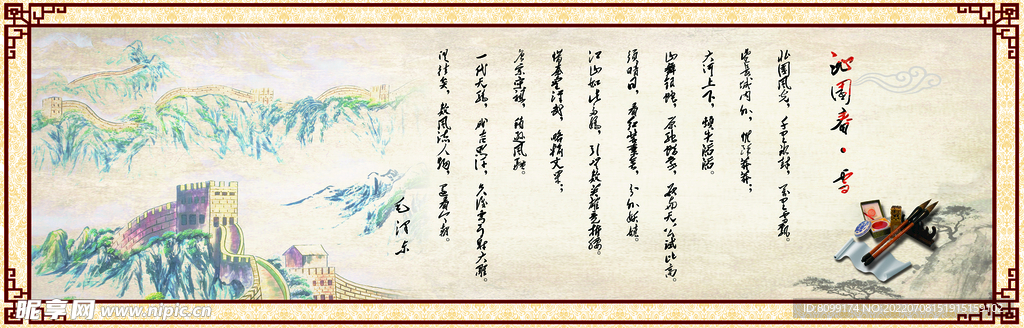 沁园春·雪
北国风光，千里冰封，万里雪飘。
望长城内外，惟余莽莽；
大河上下，顿失滔滔。
山舞银蛇，原驰蜡象，欲与天公试比高。
须晴日，看红装素裹，分外妖娆。
江山如此多娇，引无数英雄竞折腰。
惜秦皇汉武，略输文采；
唐宗宋祖，稍逊风骚。
一代天骄，成吉思汗，只识弯弓射大雕。
俱往矣，数风流人物，还看今朝。
毛泽东
昵享网 www.nipic.cn